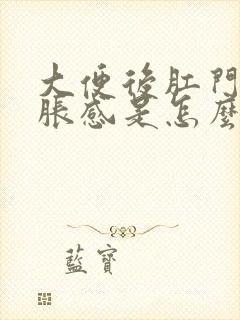 大便後肛門
脹感是怎麼
藍寶